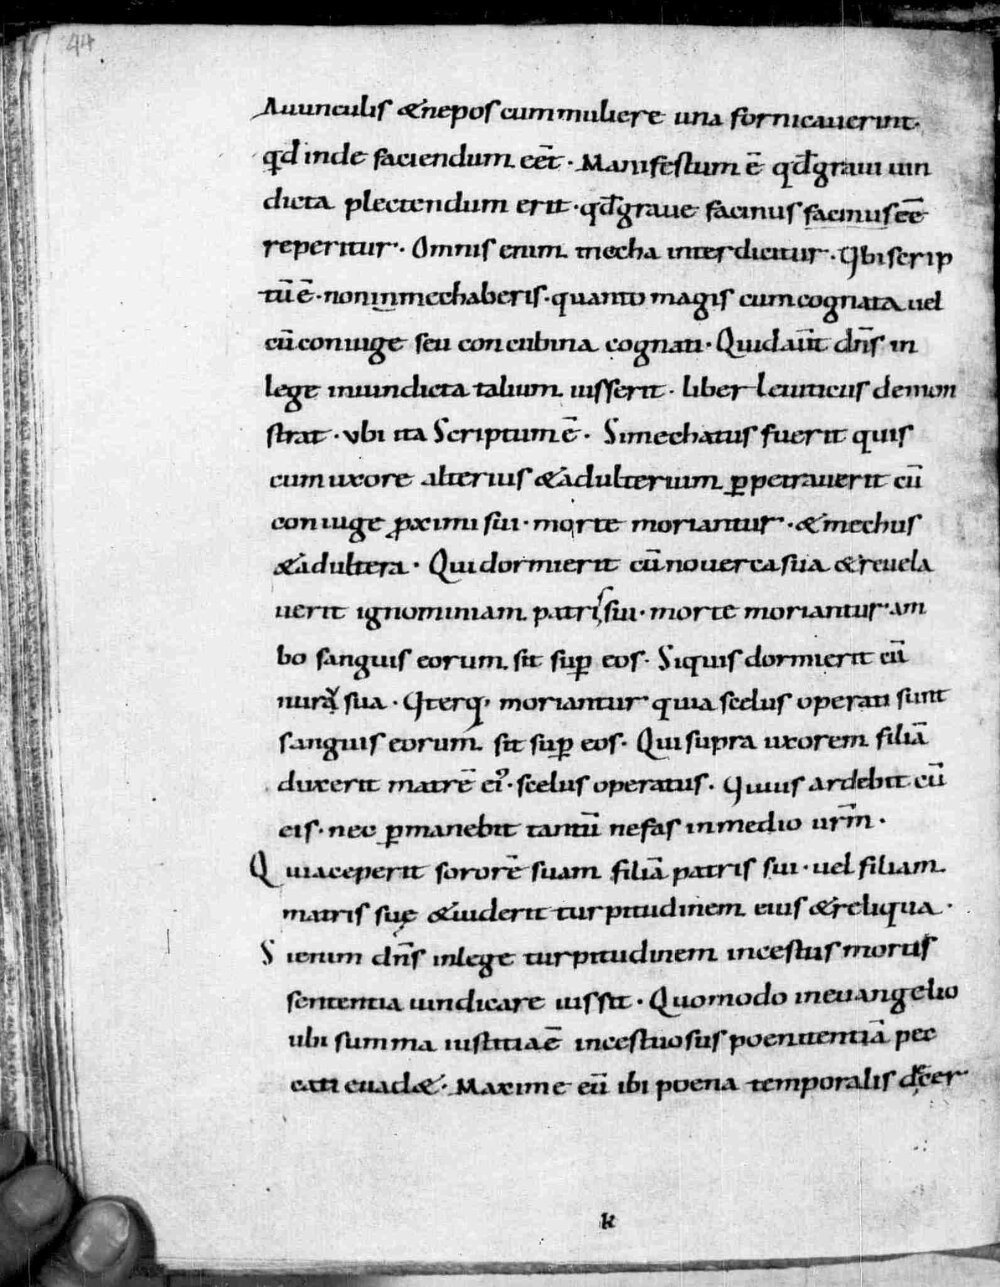 44
Auunculis &nepos cummuliere una fornicauerint·
qđ inde faciendum eēt· Manifestum ē qđgraui uin
dicta plectendum erit·qđgraue facinus facinuseē
reperitur· Omnis enim mecha interdicitur· Ubiscrip
tū ē·noninmechaberis·quanto magis cumcognata uel
cū coniuge seu concubina cognati· Quidaūt dn̄s in
lege inuindicta talium iusserit· liber leuiticus demon
strat·vbi ita Scriptum ē· Simechatus fuerit quis
cumuxore alterius &adulterium ꝑpetrauerit cū
coniuge ꝓximi sui·morte moriantur·&mechus
&adultera· Quidormierit cūnouercasua &reuela
uerit ignominiam patris sui·morte moriantur·am
bo sanguis eorum sit suꝑ eos· Siquis dormierit cū
nura sua· Uterq, moriantur quia scelus operati sunt
sanguis eorum sit suꝑ eos· Quisupra uxorem filiā
duxerit matrē ei᾽·scelus operatus· Uiuus ardebit cū
eis·nec ꝑmanebit tantū nefas inmedio ur̄m·
Quiacceperit sororē suam filiā patris sui·uel filiam
matris suę &uiderit turpitudinem eius &reliqua·
Sienim dn̄s inlege turpitudinem incestus mortis
sententia uindicare iussit· Quomodo ineuangelio
ubi summa iustitiaē incestuosus poenitentiā pec
cati euad&· Maxime cū ibi poena temporalis
k